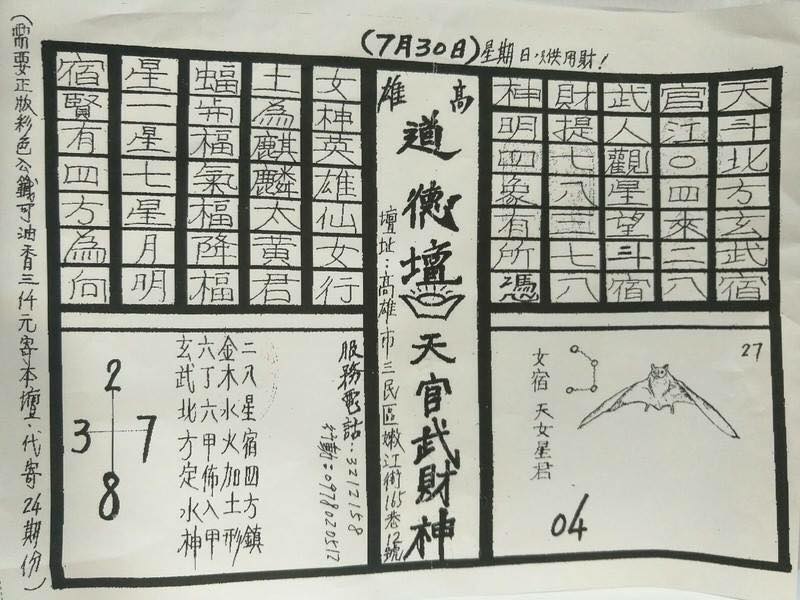 (7月30日)星期日以供用財！
天斗北方玄武宿
官江〇四來二八
武人觀星望斗宿
財提七八三七八
神明四象有所憑
27
女宿 天女星君
04
高雄
道德壇
天官武財神
壇址：高雄市三民區嫩江街165巷12號
女神英雄仙女行
土為麒麟太黃君
蝠 福氣福降福
星一星七星月明
宿賢有四方為向
服務電話：3212158
行動：0978020512
二八星宿四方鎮
金木水火加土形
六丁六甲佈入甲
玄武北方定水神
2
3 7
8
(需要正版彩色公籤可油香三仟元寄本壇．代寄24期份)